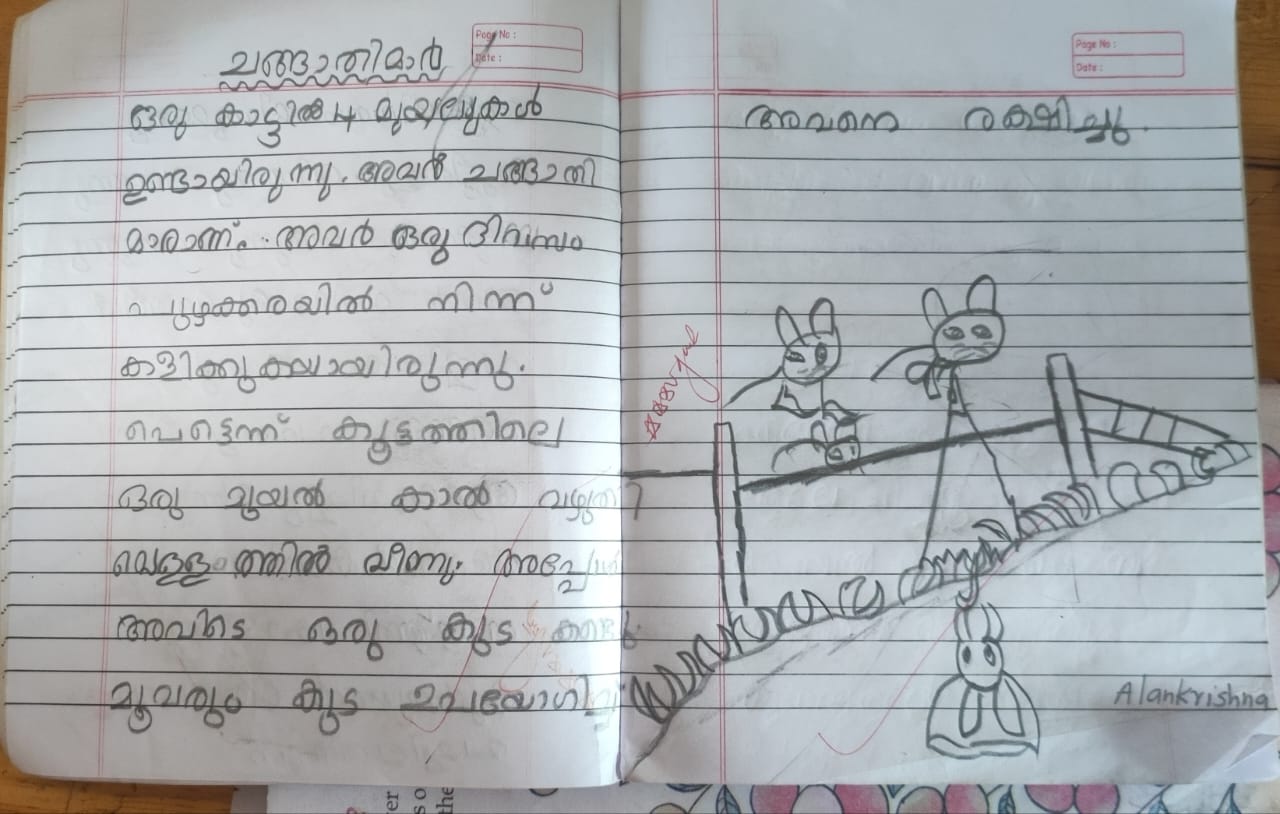 ചങ്ങാതിമാർ
Page No :
Date :
ഒരു കാട്ടിൽ 4 മുയലുകൾ
ഉണ്ടായിരുന്നു. അവർ ചങ്ങാതി
മാരാണ്. അവർ ഒരു ദിവസം
പുഴക്കരയിൽ നിന്ന്
കളിക്കുകയായിരുന്നു.
പെട്ടെന്ന് കൂട്ടത്തിലെ
ഒരു മുയൽ കാൽ വഴുതി
വെള്ളത്തിൽ വീണു. അപ്പോൾ
അവിടെ ഒരു കുട കണ്ടു
മൂവരും കുട ഉപയോഗിച്ച്
Page No :
Date :
അവനെ രക്ഷിച്ചു.
Alankrishna